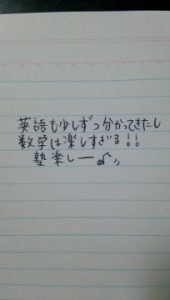 英語も少しずつ分かってきたし
数学は楽しすぎる!!
塾楽しー